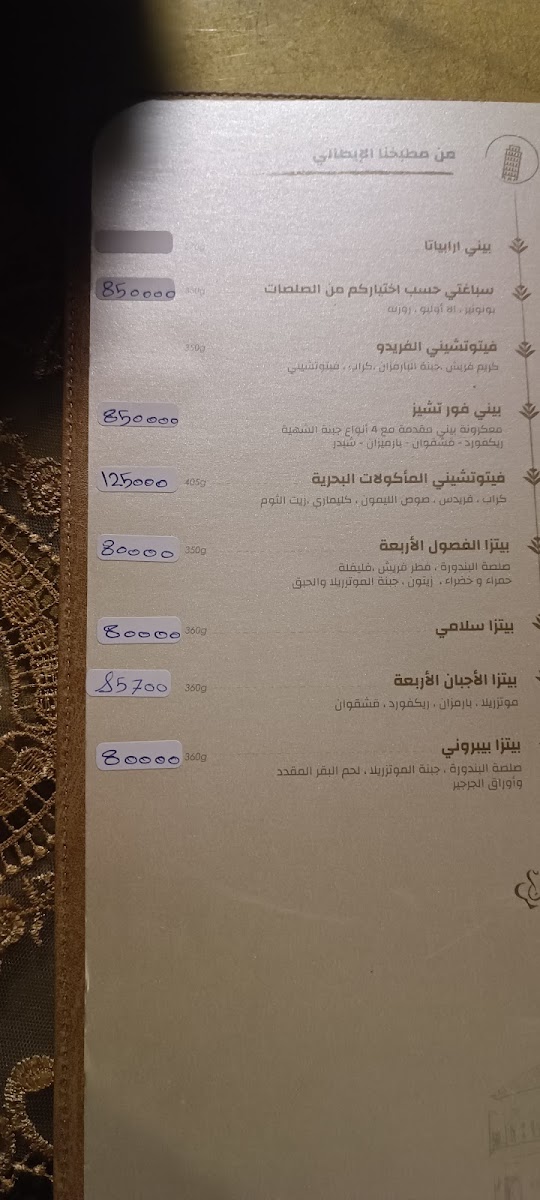 من مطبخنا الإيطالي
بيني ارابياتا
سباغتي حسب اختياركم من الصلصات 350g 850000
بولونيز ، الا أوليو ، روزيه
فيتوتشيني الفريدو 350g
كريم فريش ،جبنة البارمزان ،كراب ، فيتوتشيني
بيني فور تشيز 850000
معكرونة بيني مقدمة مع 4 أنواع جبنة الشهية
ريكفورد - قشقوان - بارميزان - شيدر
فيتوتشيني المأكولات البحرية 405g 125000
كراب ، قريدس ، صوص الليمون ، كليماري ،زيت الثوم
بيتزا الفصول الأربعة 350g 80000
صلصة البندورة ، فطر فريش ،فليفلة
حمراء و خضراء ، زيتون ، جبنة الموتزريلا والحبق
بيتزا سلامي 360g 80000
بيتزا الأجبان الأربعة 360g 85700
موتزريلا ، بارمزان ، ريكفورد ، قشقوان
بيتزا بيبروني 360g 80000
صلصة البندورة ، جبنة الموتزريلا ، لحم البقر المقدد
وأوراق الجرجير